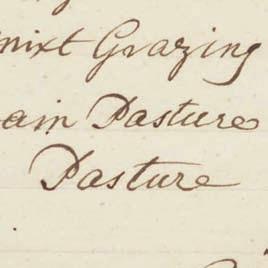 mixt Grazing
ain Pasture
Pasture